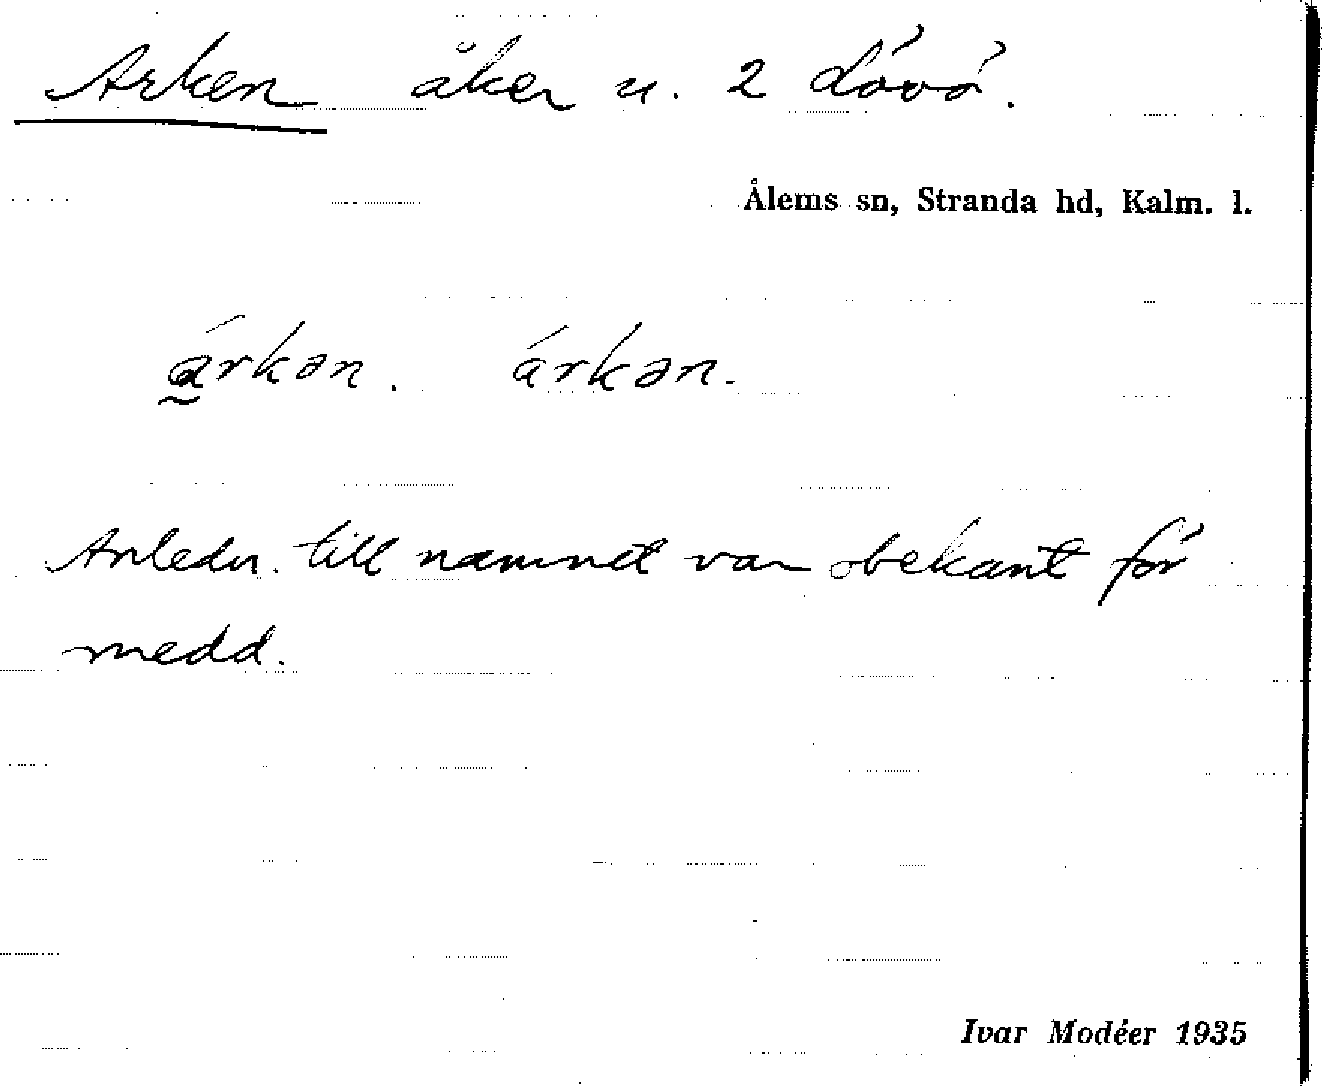 Arken åker u. 2 Lövö.
Ålems sn, Stranda hd, Kalm. l.
árkən. árkən.
Anledn. till namnet var obekant för
medd.
Ivar Modéer 1935